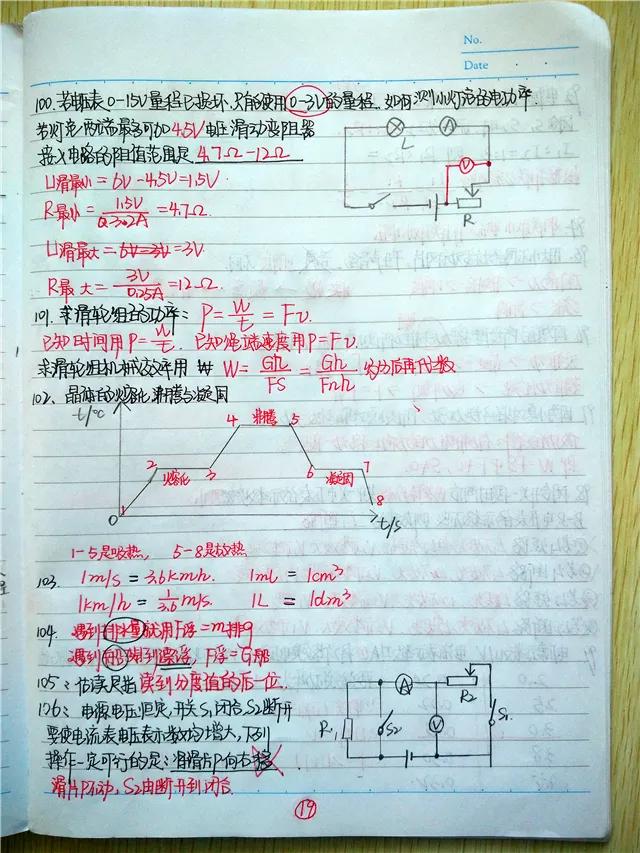 No.
Date
100. 若电压表0-15V量程已损坏,只能使用0-3V的量程,如何测小灯泡的电功率.
若灯泡两端最多可加4.5V电压滑动变阻器
接入电路的阻值范围是 4.7Ω-12Ω
U滑最小 = 6V-4.5V=1.5V
R最小 = 1.5V/0.32A = 4.7Ω
U滑最大 = 6V-3V=3V
R最大 = 3V/0.25A = 12Ω
L
A
V
R
101. 求滑轮组的功率: P = W/t = Fv.
已知时间用P=W/t. 已知绳端速度用P=Fv.
求滑轮组机械效率用 W = Gh/FS = Gh/Fnh 约分后再代数
102、晶体的熔化、沸腾与凝固
t/℃
4 沸腾 5
2 熔化 3
6 凝固 7
1
8
0
t/s
1-5是吸热, 5-8是放热
103. 1m/s = 3.6km/h. 1ml = 1cm³
1km/h = 1/3.6 m/s. 1L = 1dm³
104. 遇到排水量就用F浮=m排g
遇到船想到漂浮,F浮=G船
105: 估读是指读到分度值的后一位.
126: 电源电压恒定,开关S1闭合,S2断开
要使电流表电压表示数均增大,下列
操作一定可行的是: 滑滑片P向右移
滑片P不动,S2由断开到闭合.
A
R2
R1
S2
V
S1
19